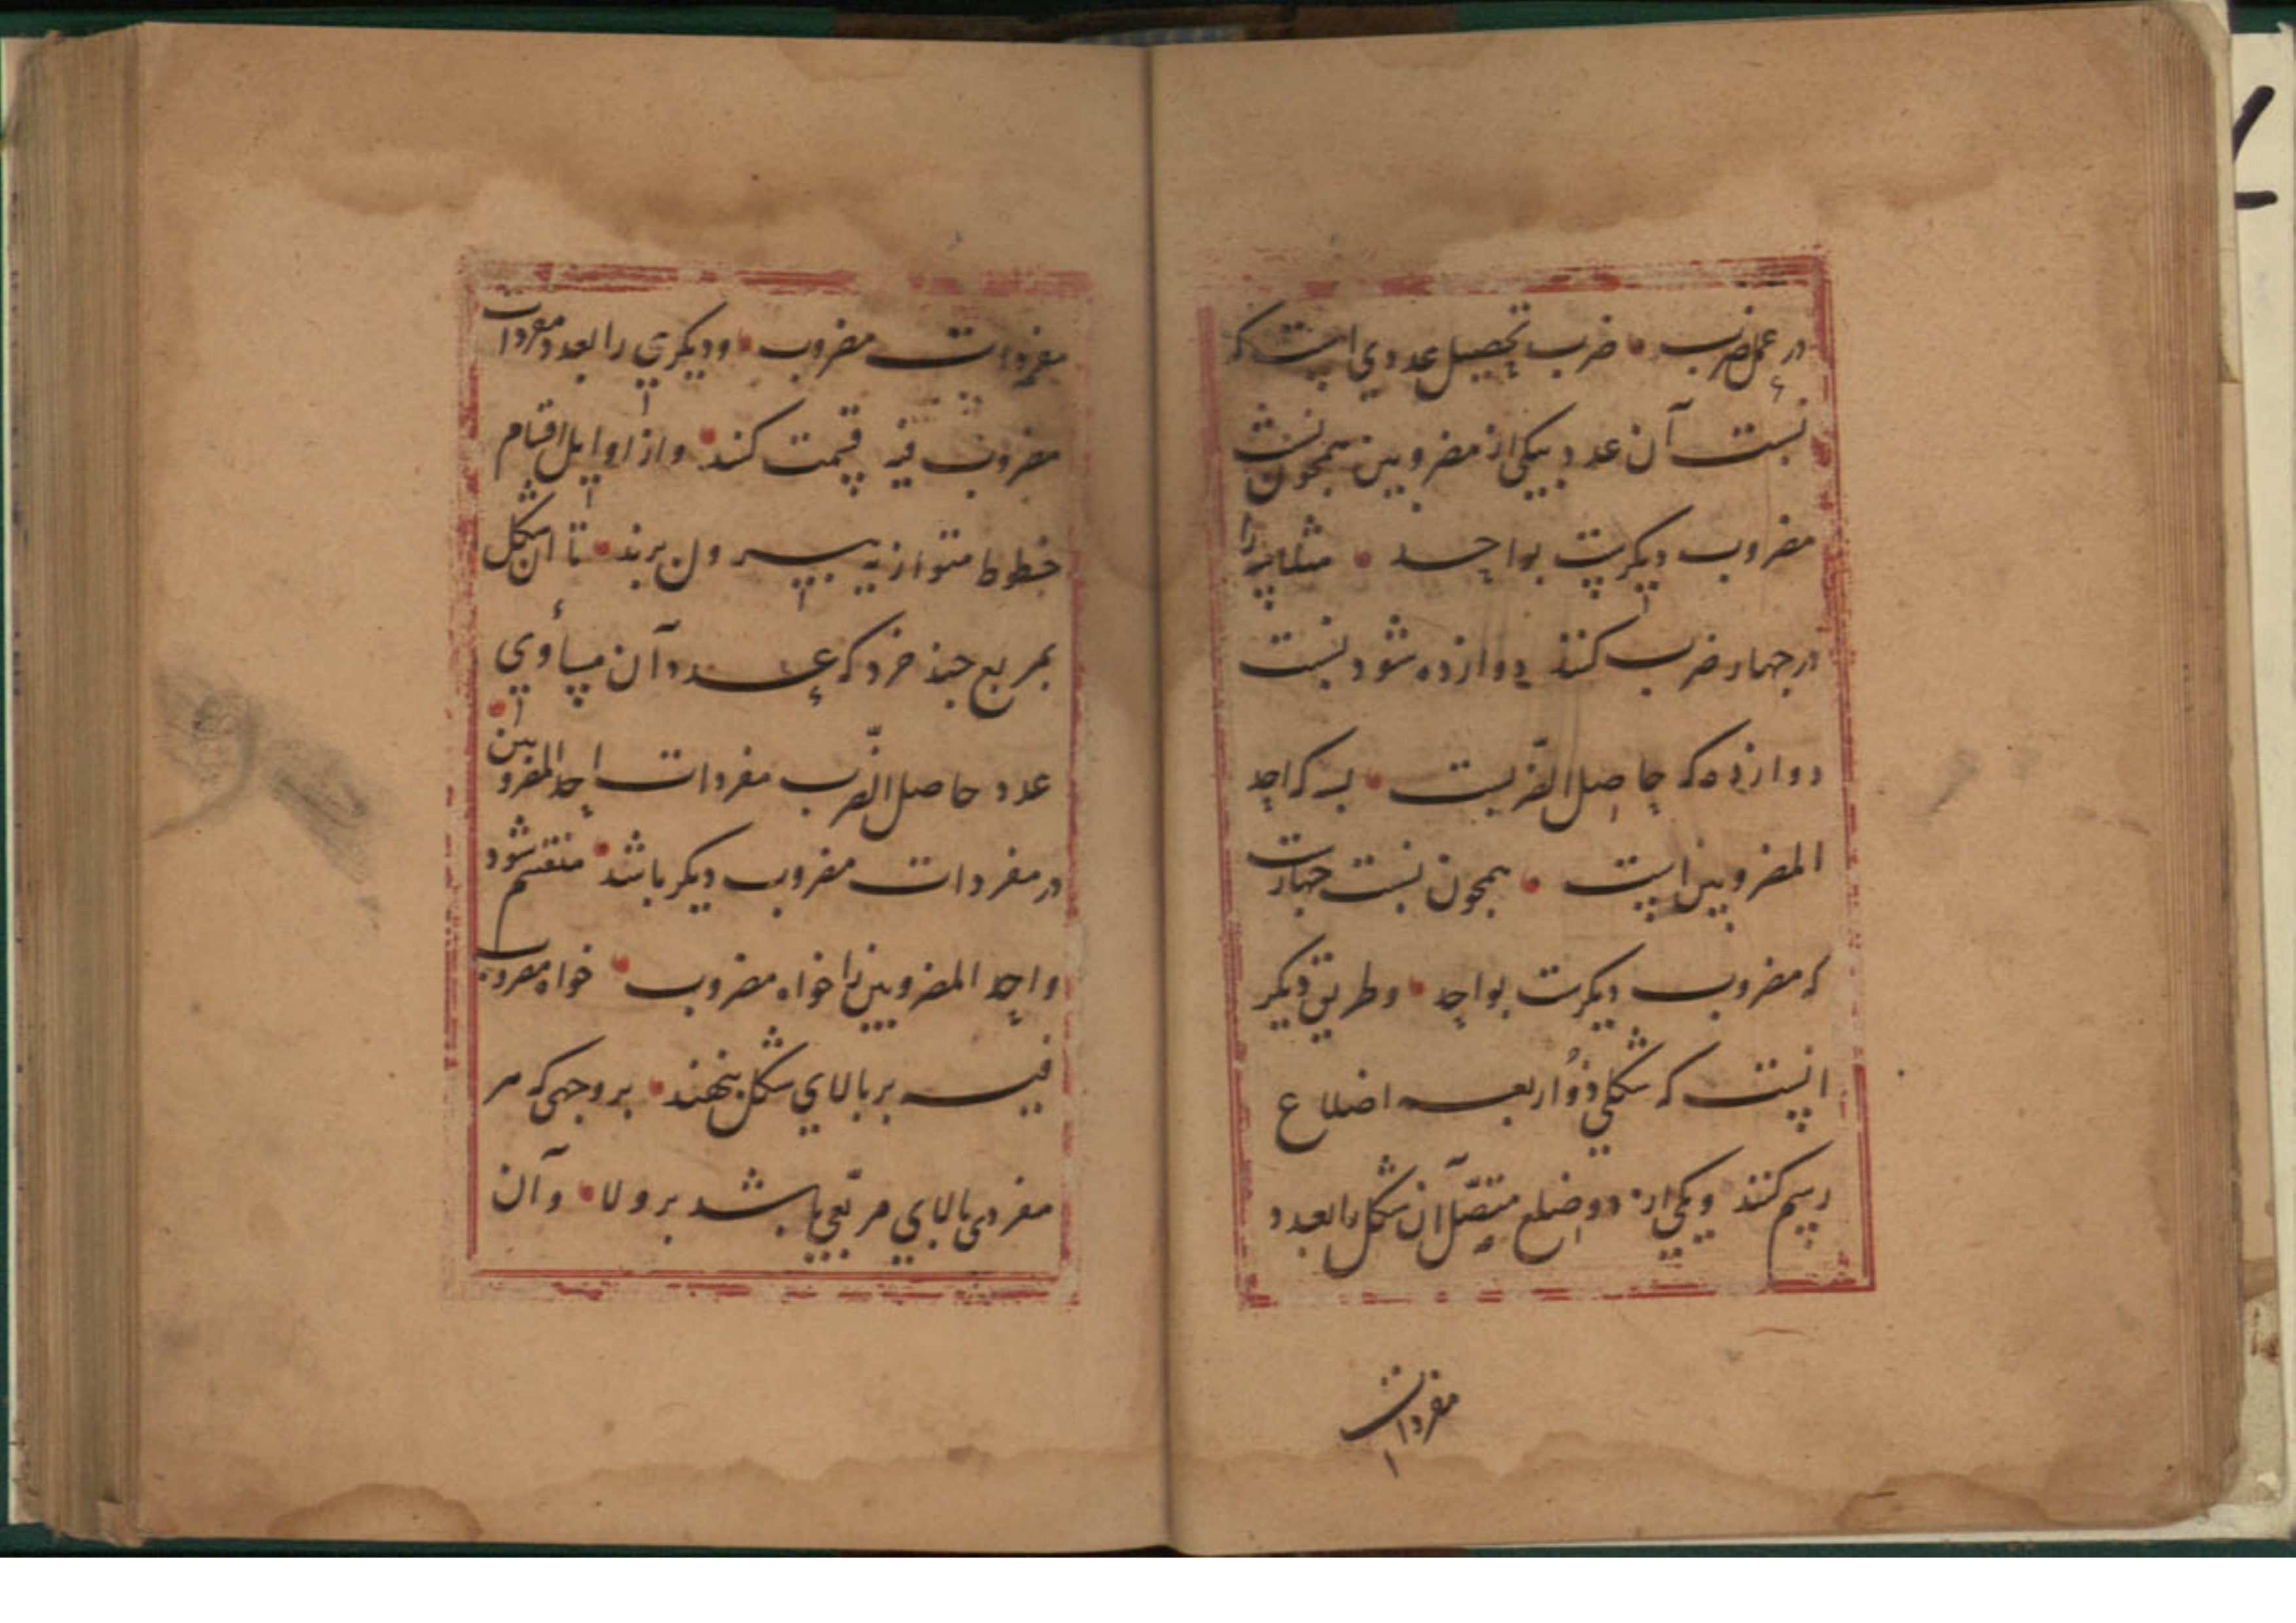 در عمل ضرب • ضرب تحصیل عددی است که
نسبت آن عدد بیکی از مضروبین همچون نسبت
مضروب دیکرست بواحد • مثلا سه را
در جهار ضرب کنند دوازده شود نسبت
دوازده که حاصل الضربست • بسه که احد
المضروبین است • همچون نسبت جهارست
که مضروب دیکرست بواحد • و طریق دیکر
انست که شکلی ذو اربعه اضلاع
رسم کنند و یکی از دو ضلع متصل آن شکل را بعدد
مفردات
مفردات مضروب • و دیکری را بعدد مفردات
مضروب فیه قسمت کنند • و از اوایل اقسام
خطوط متوازیه بیرون برند • تا ان شکل
بمربع جند خرد که عدد آن مساوی •
عدد حاصل الضرب مفردات احد المضروبین
در مفردات مضروب دیکر باشد • منقسم شود
و احد المضروبین را خواه مضروب • خواه مضروب
فیه بر بالای شکل بنهند • بر وجهی که هر
مفردی بالای مربعی باشد بر ولا • و آن